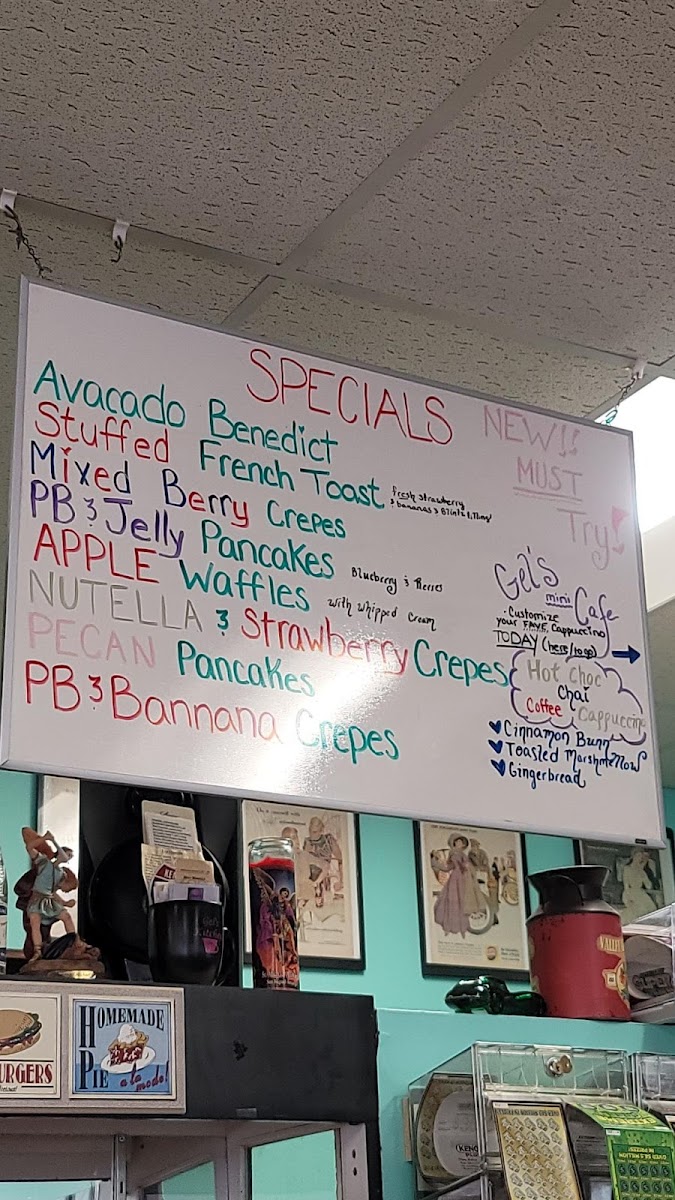 SPECIALS
Avacado Benedict
Stuffed French Toast
fresh strawberry
& bananas & Blintz filling
Mixed Berry Crepes
PB & Jelly Pancakes
Blueberry &
APPLE Waffles
with whipped cream
NUTELLA & Strawberry Crepes
PECAN Pancakes
PB & Bannana Crepes
NEW!!
MUST
Try!
Gel's
mini Cafe
· Customize
your FAVE Cappuccino
TODAY (here/to go)
Hot Choc
Chai
Coffee Cappuccino
Cinnamon Bunn
Toasted Marshmellow
Gingerbread
URGERS
HOMEMADE
PIE a la mode!